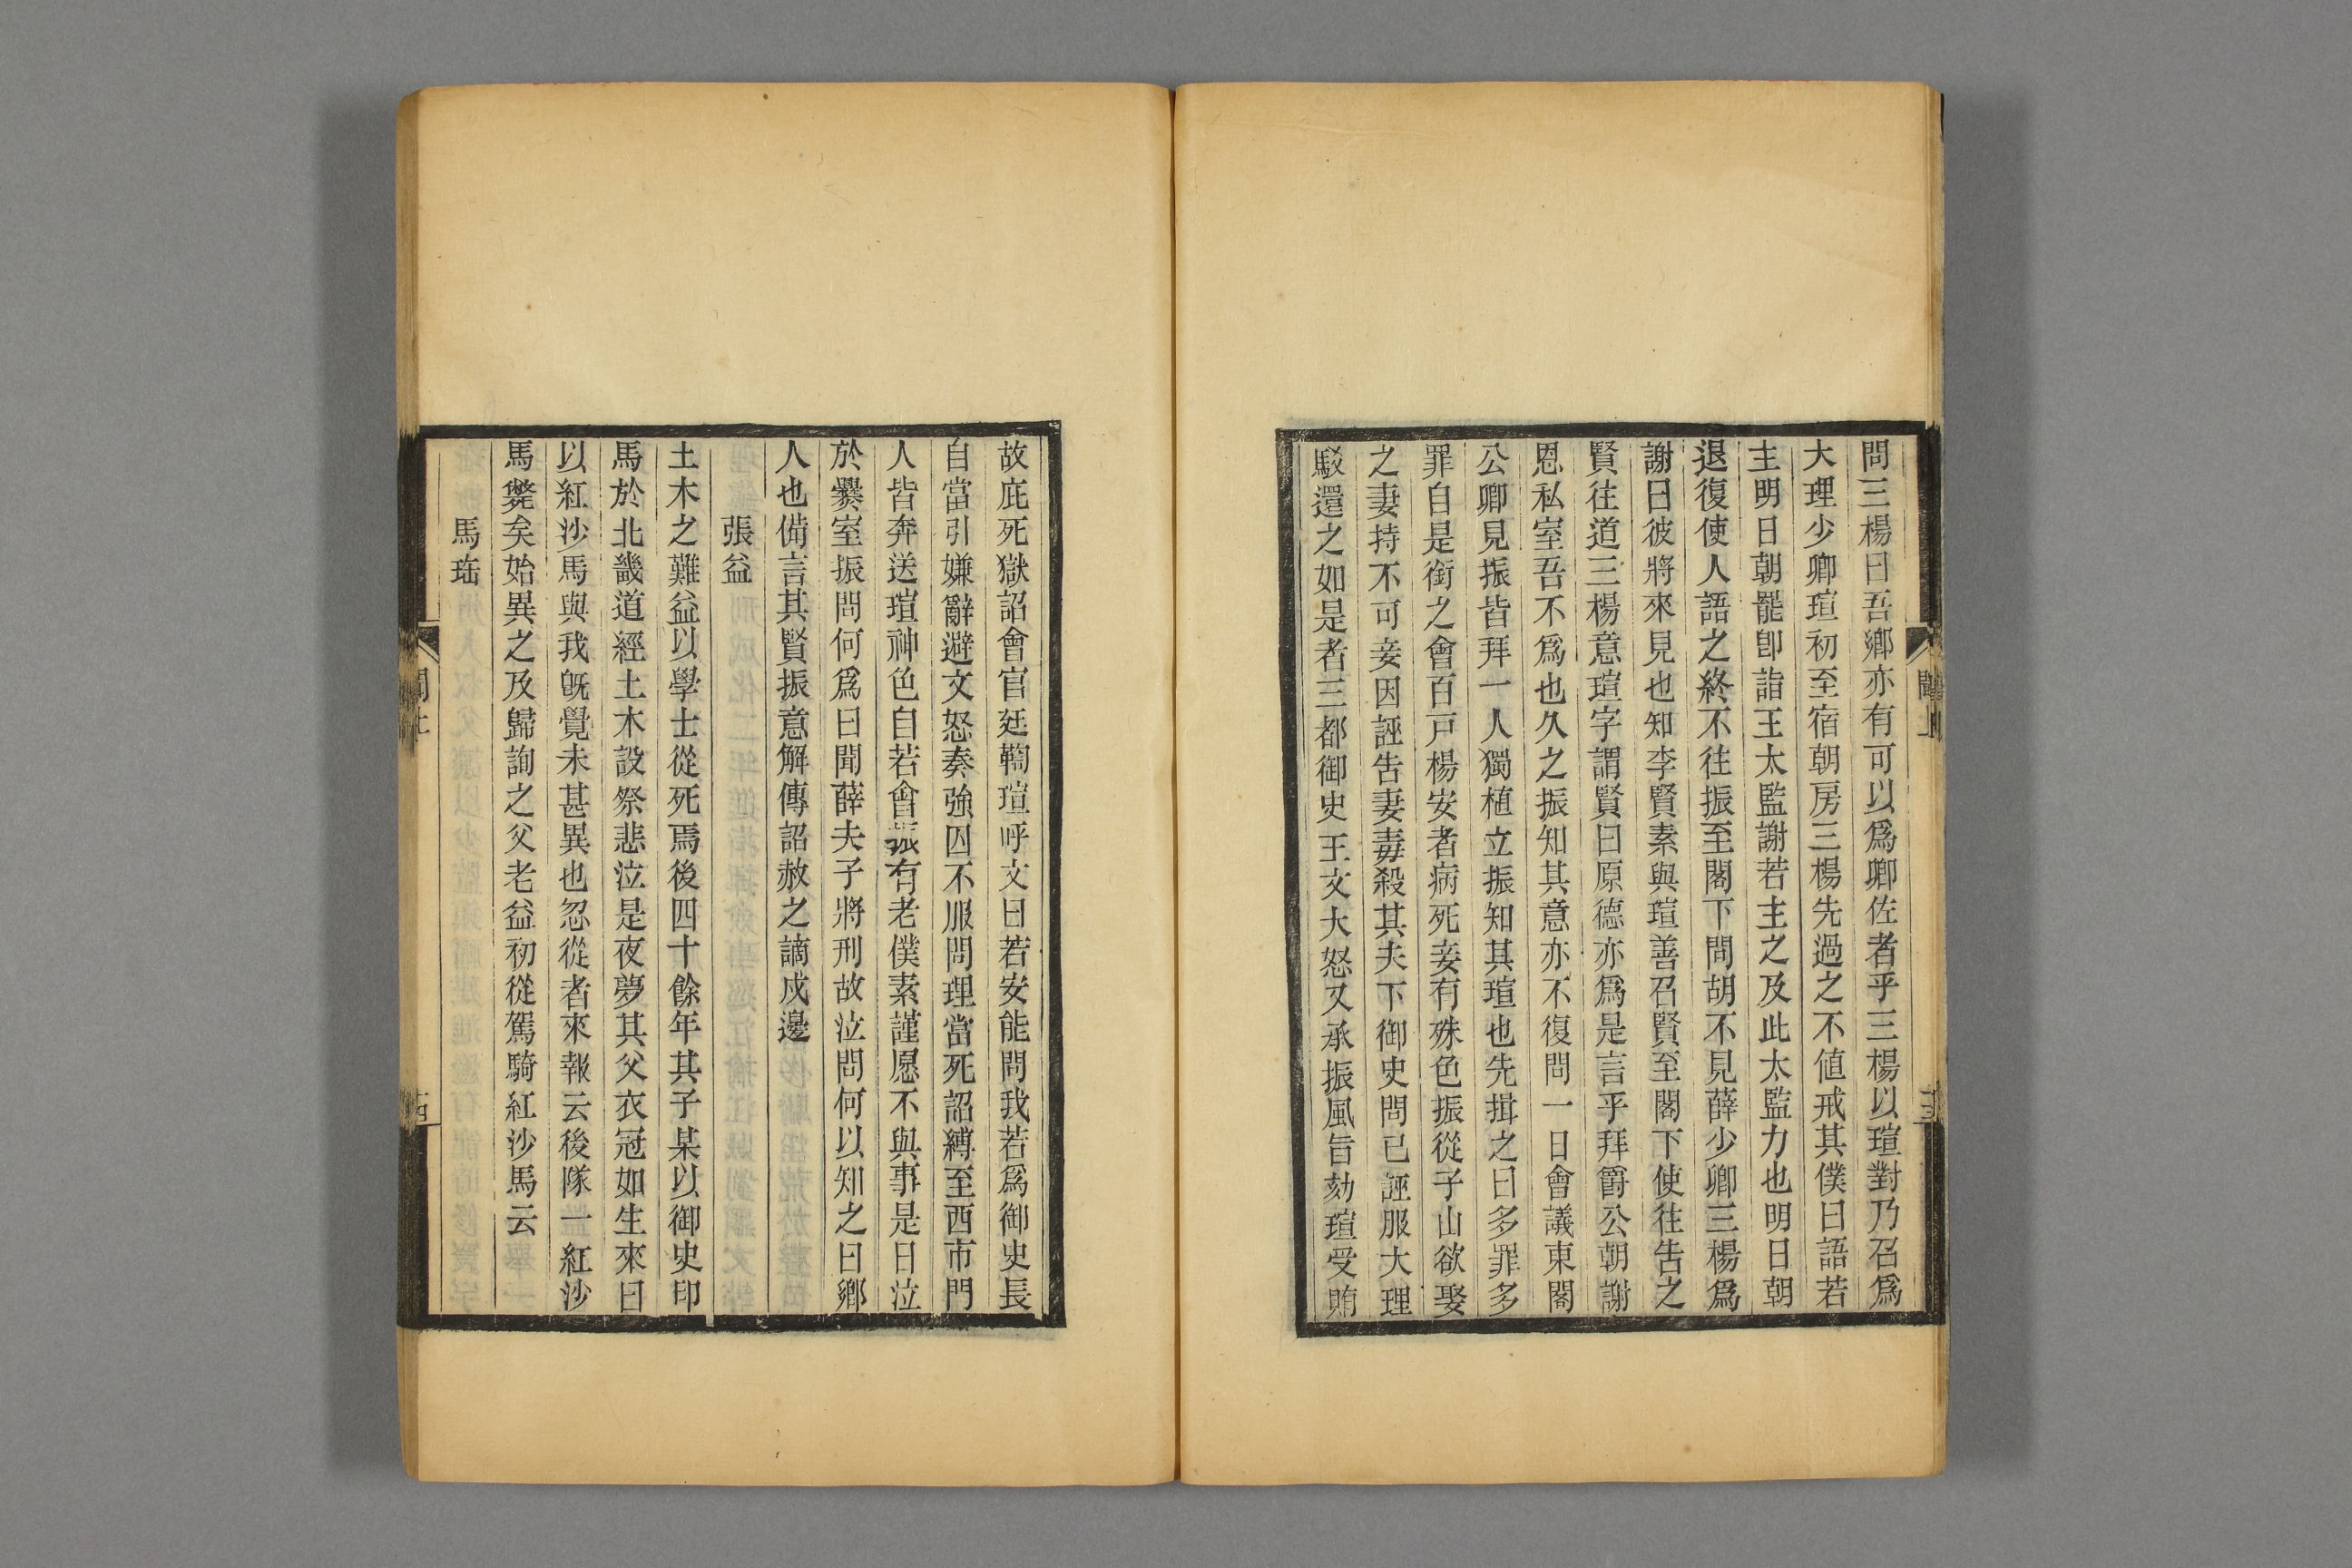 問三楊曰吾鄉亦有可以爲卿佐者乎三楊以瑄對乃召爲
大理少卿瑄初至宿朝房三楊先過之不値戒其僕曰語若
主明日朝罷卽詣王太監謝若主之及此太監力也明日朝
退復使人語之終不往振至閣下問胡不見薛少卿三楊爲
謝曰彼將來見也知李賢素與瑄善召賢至閣下使往告之
賢往道三楊意瑄字謂賢曰原德亦爲是言乎拜爵公朝謝
恩私室吾不爲也久之振知其意亦不復問一日會議東閣
公卿見振皆拜一人獨植立振知其瑄也先揖之曰多罪多
罪自是銜之會百戸楊安者病死妾有殊色振從子山欲娶
之妻持不可妾因誣告妻毒殺其夫下御史問已誣服大理
駁還之如是者三都御史王文大怒又承振風旨劾瑄受賄
聞上
故庇死獄詔會官廷鞫瑄呼文曰若安能問我若爲御史長
自當引嫌辭避文怒奏強囚不服問理當死詔縛至西市門
人皆奔送瑄神色自若會振有老僕素謹愿不與事是日泣
於爨室振問何爲曰聞薛夫子將刑故泣問何以知之曰鄉
人也備言其賢振意解傳詔赦之謫戍邊
張益
土木之難益以學士從死焉後四十餘年其子某以御史印
馬於北畿道經土木設祭悲泣是夜夢其父衣冠如生來曰
以紅沙馬與我旣覺未甚異也忽從者來報云後隊一紅沙
馬斃矣始異之及歸詢之父老益初從駕騎紅沙馬云
馬㻂